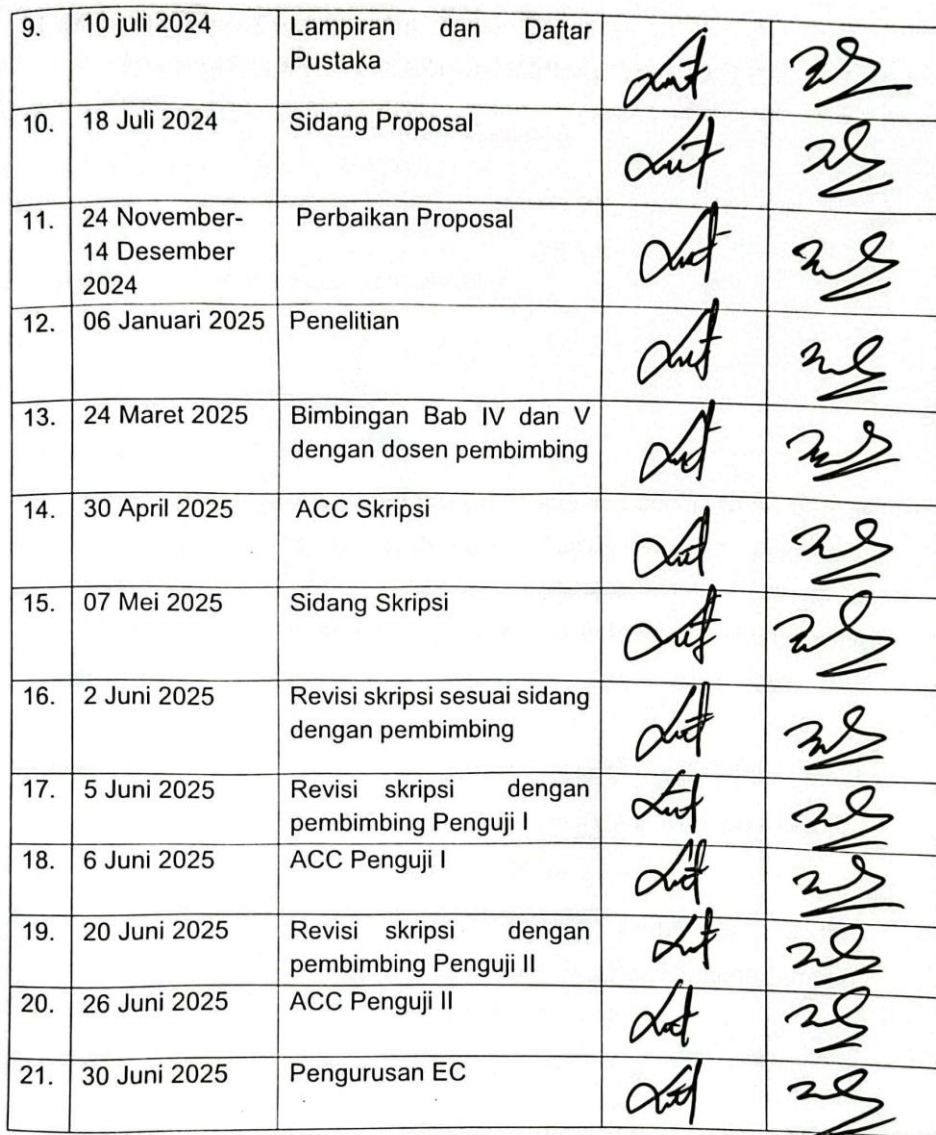 9. 10 juli 2024 Lampiran dan Daftar
Pustaka
10. 18 Juli 2024 Sidang Proposal
11. 24 November- Perbaikan Proposal
14 Desember
2024
12. 06 Januari 2025 Penelitian
13. 24 Maret 2025 Bimbingan Bab IV dan V
dengan dosen pembimbing
14. 30 April 2025 ACC Skripsi
15. 07 Mei 2025 Sidang Skripsi
16. 2 Juni 2025 Revisi skripsi sesuai sidang
dengan pembimbing
17. 5 Juni 2025 Revisi skripsi dengan
pembimbing Penguji I
18. 6 Juni 2025 ACC Penguji I
19. 20 Juni 2025 Revisi skripsi dengan
pembimbing Penguji II
20. 26 Juni 2025 ACC Penguji II
21. 30 Juni 2025 Pengurusan EC